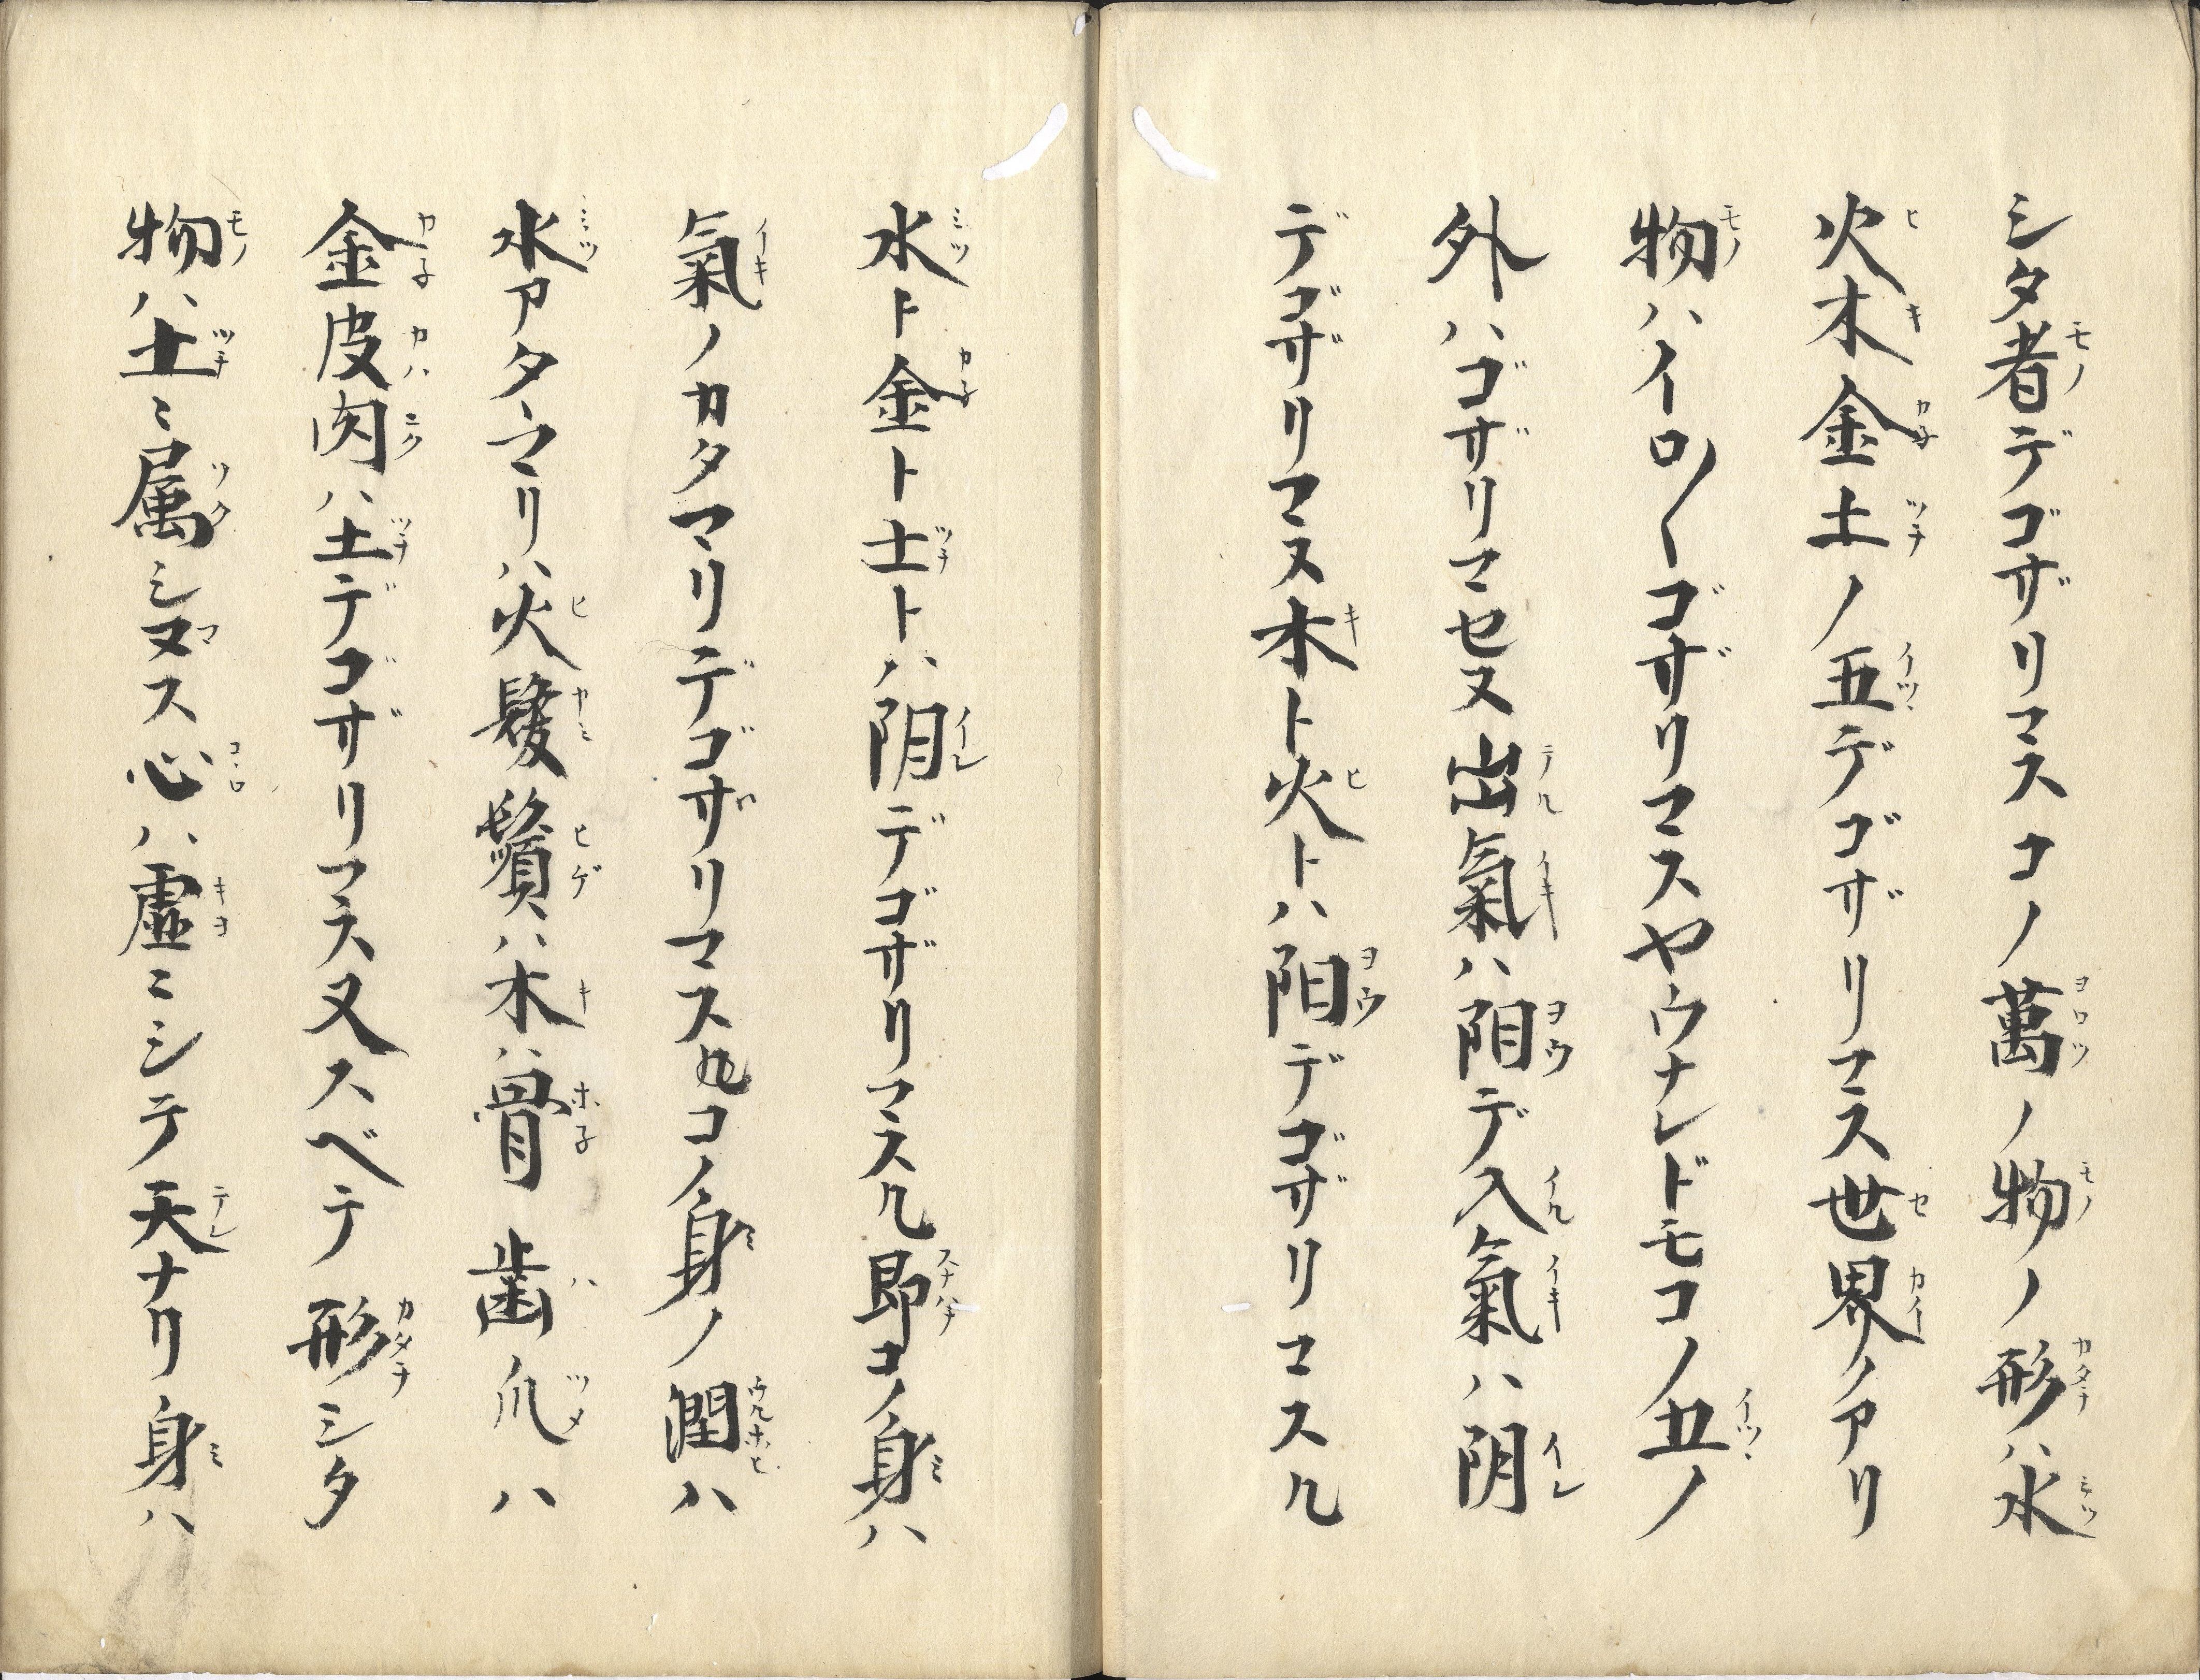 シタ者デゴザリマスコノ萬ノ物ノ形ハ水
火木金土ノ五デゴザリマス世界ノアリ
物ハイロ〳〵ゴザリマスヤウナレドモコノ五ノ
外ハゴザリマセヌ出氣ハ阳デ入氣ハ阴
デゴザリマス木ト火トハ阳デゴザリマスル
水ト金ト土トハ阴デゴザリマスル即コノ身ハ
氣ノカタマリデゴザリマスルコノ身ノ潤ハ
水アタヽマリハ火髪鬚ハ木ハ骨歯爪ハ
金皮肉ハ土デゴザリマス又スベテ形シタ
物ハ土ニ属シマス心ハ虚ニシテ天ナリ身ハ